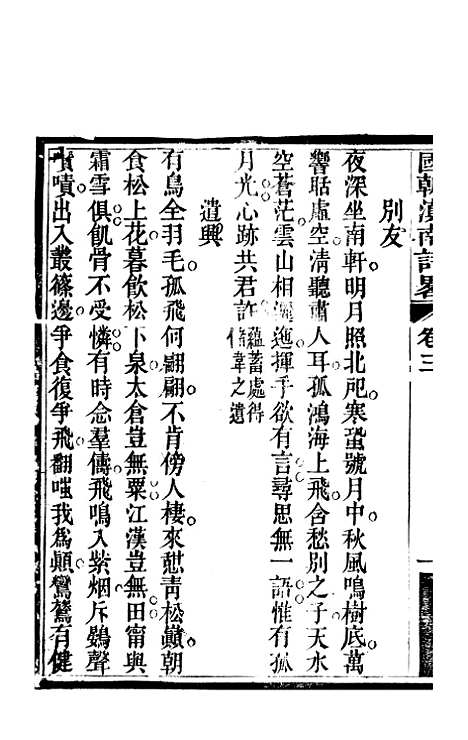 國朝滇南詩畧 卷三 一
別友
夜深坐南軒明月照北戺寒蛩號月中秋風鳴樹底萬
響聒虛空淸聽肅人耳孤鴻海上飛含愁別之子天水
空蒼茫雲山相邐迤揮手欲有言尋思無一語惟有孤
月光心跡共君許蘊蓄處得
儲韋之遺
遣興
有鳥全羽毛孤飛何翩翩不肯傍人棲來憇靑松巓朝
食松上花暮飲松下泉太倉豈無粟江漢豈無田甯與
霜雪俱飢骨不受憐有時念羣儔飛鳴入紫烟斥鷃聲
嘖嘖出入叢篠邊爭食復爭飛翻嗤我爲顚鸞鶿有健